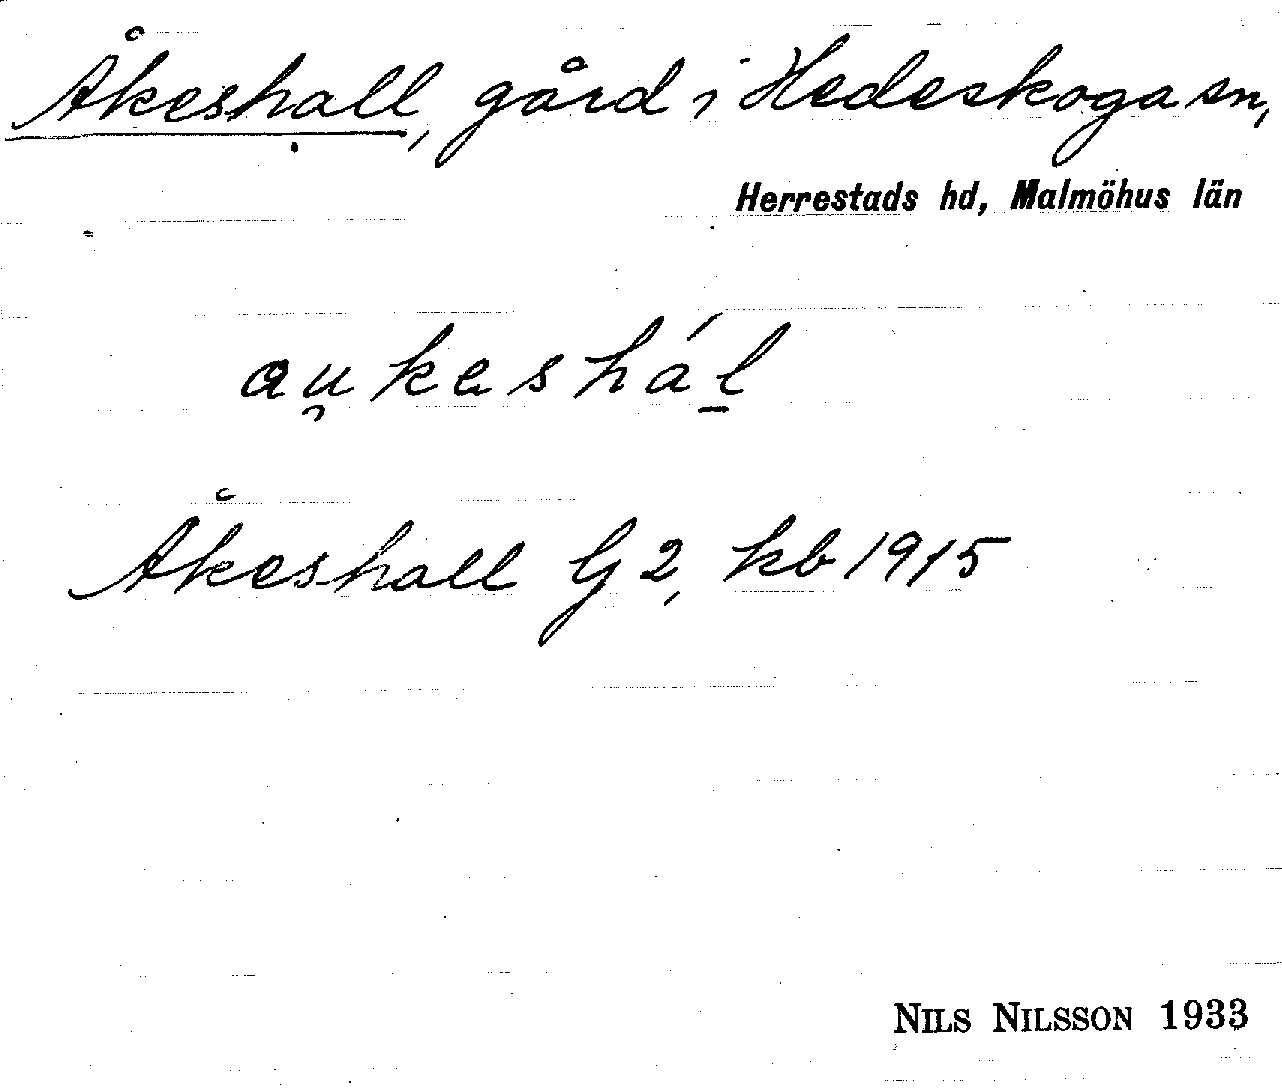 Åkeshall, gård i Hedeskoga sn,
Herrestads hd, Malmöhus län
au̯keshál̲
Åkeshall G 2, kb 1915
NILS NILSSON 1933